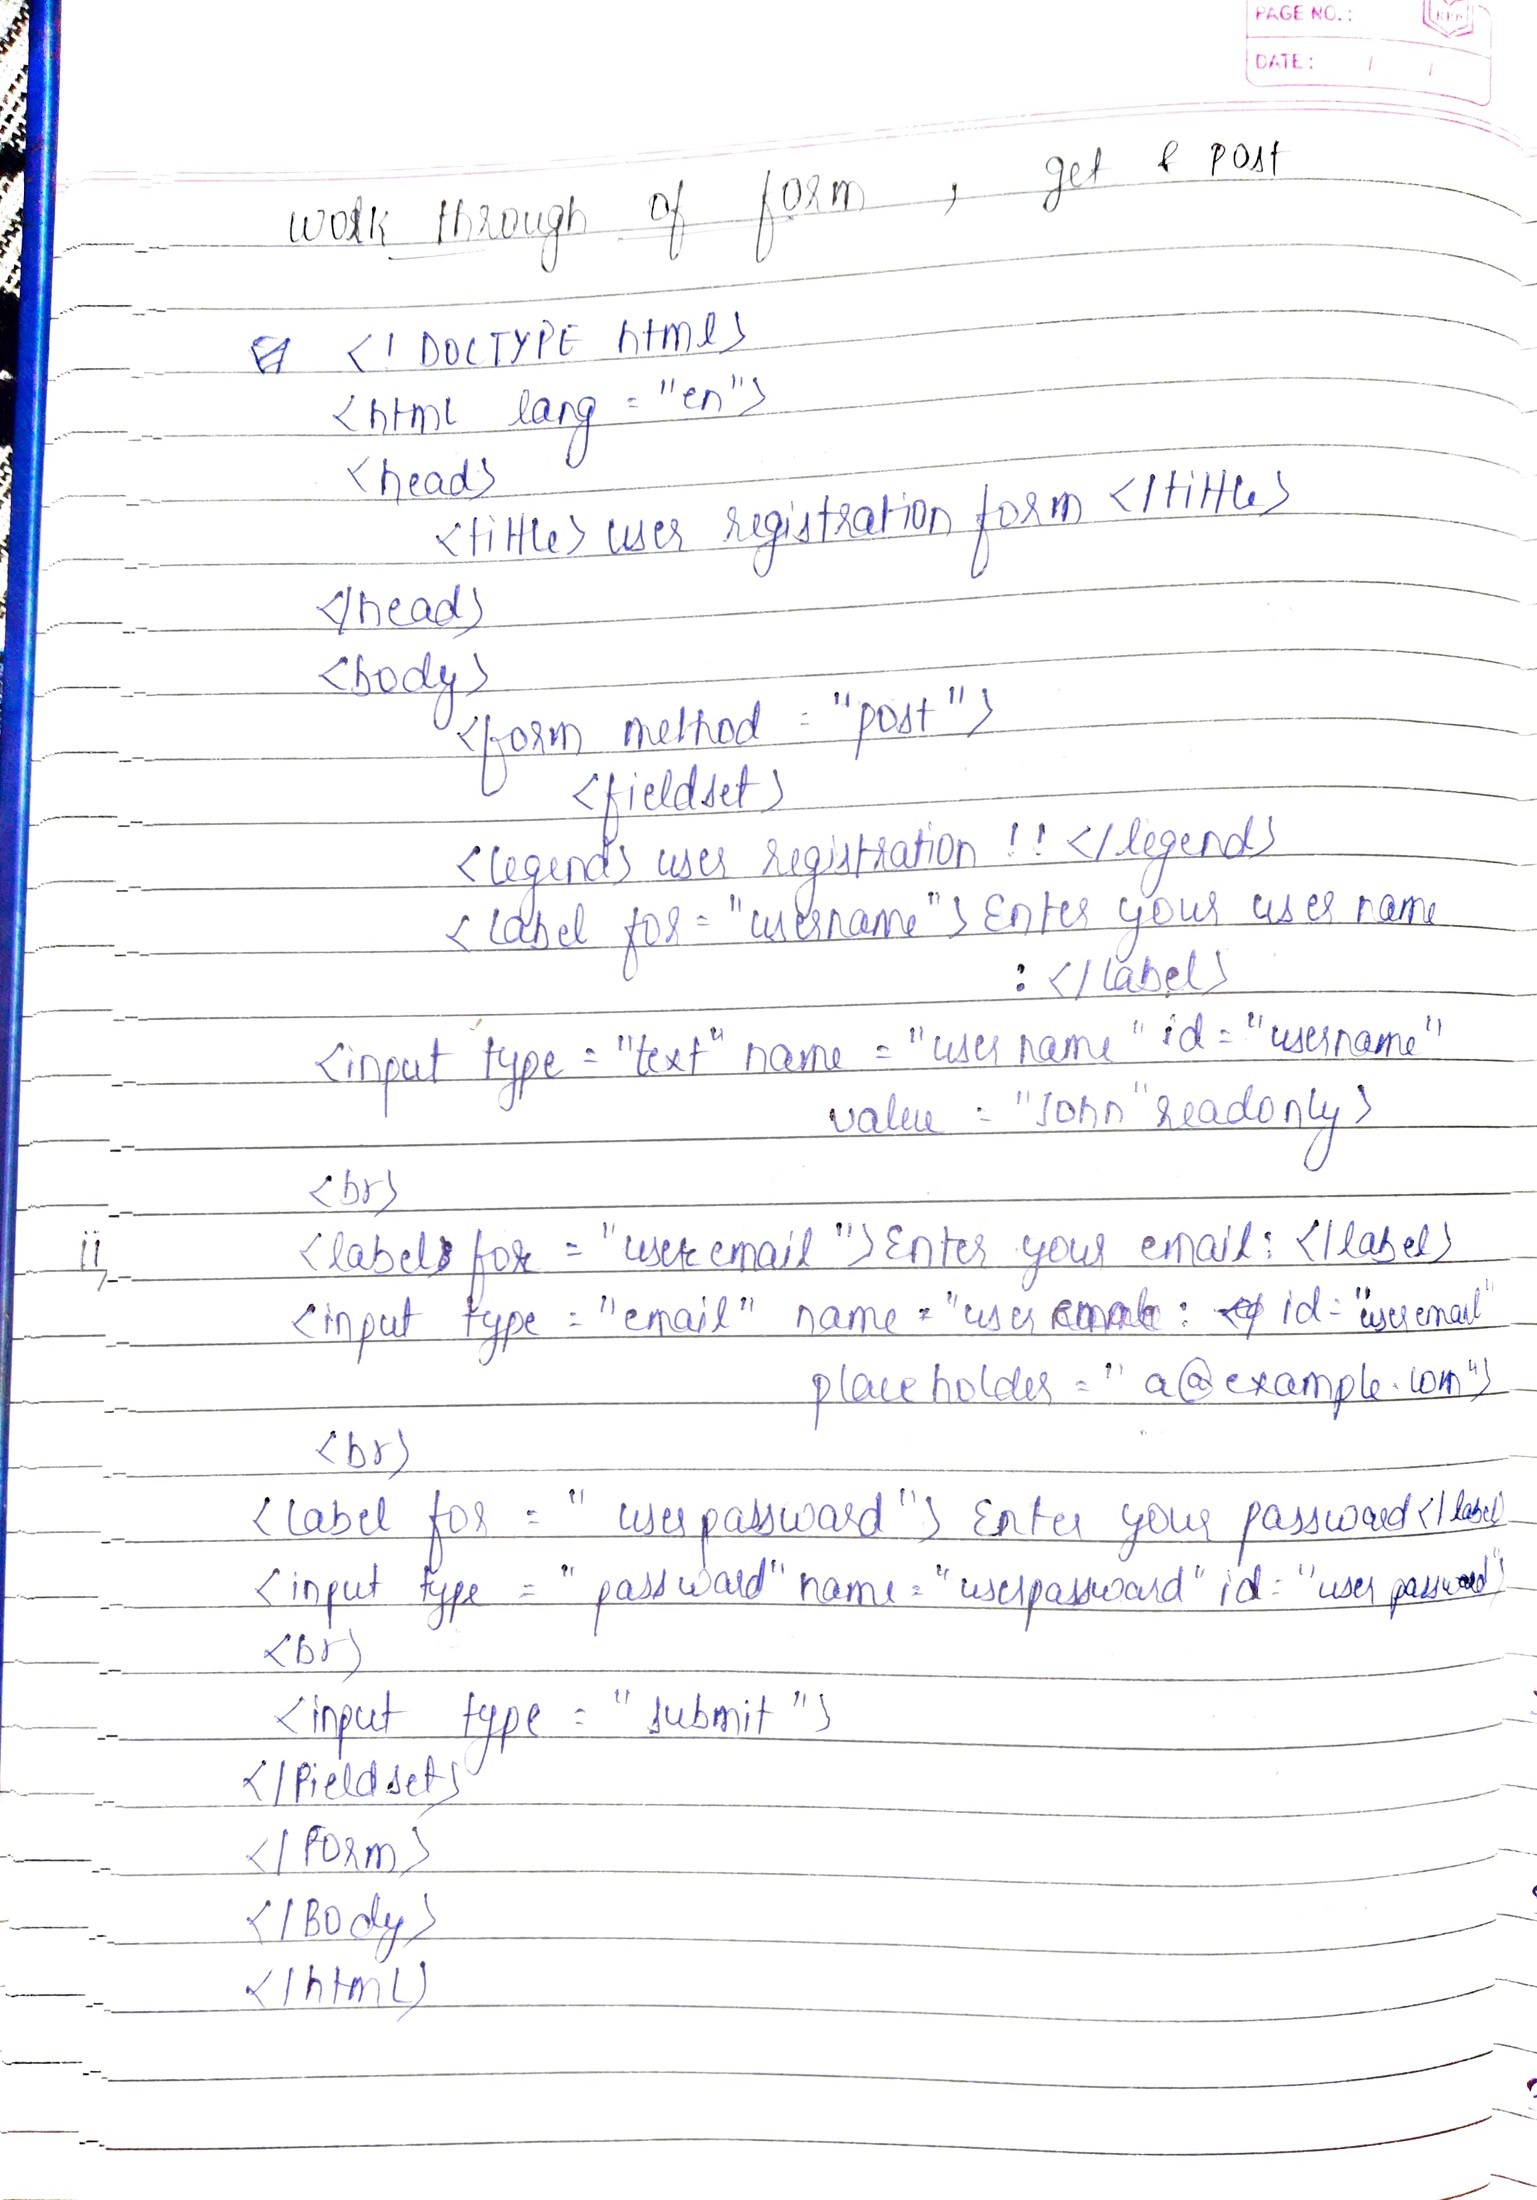 PAGE NO. :
DATE : / /
work through of form , get & post
<! DOCTYPE html>
<html lang = "en">
<head>
<tittle> user registration form </tittle>
</head>
<body>
<form method = "post">
<fieldset>
<legend> user registration !! </legend>
<label for = "username"> Enter your user name
: </label>
<input type = "text" name = "user name" id = "username"
value = "John" readonly>
<br>
ii, <label for = "user email"> Enter your email : </label>
<input type = "email" name = "user id = "user email"
placeholder = " a@example.com">
<br>
<label for = " user password"> Enter your password </label
<input type = " password" name = "userpassword" id = "user password">
<br>
<input type = " submit ">
</Fieldset>
</Form>
</Body>
</html>